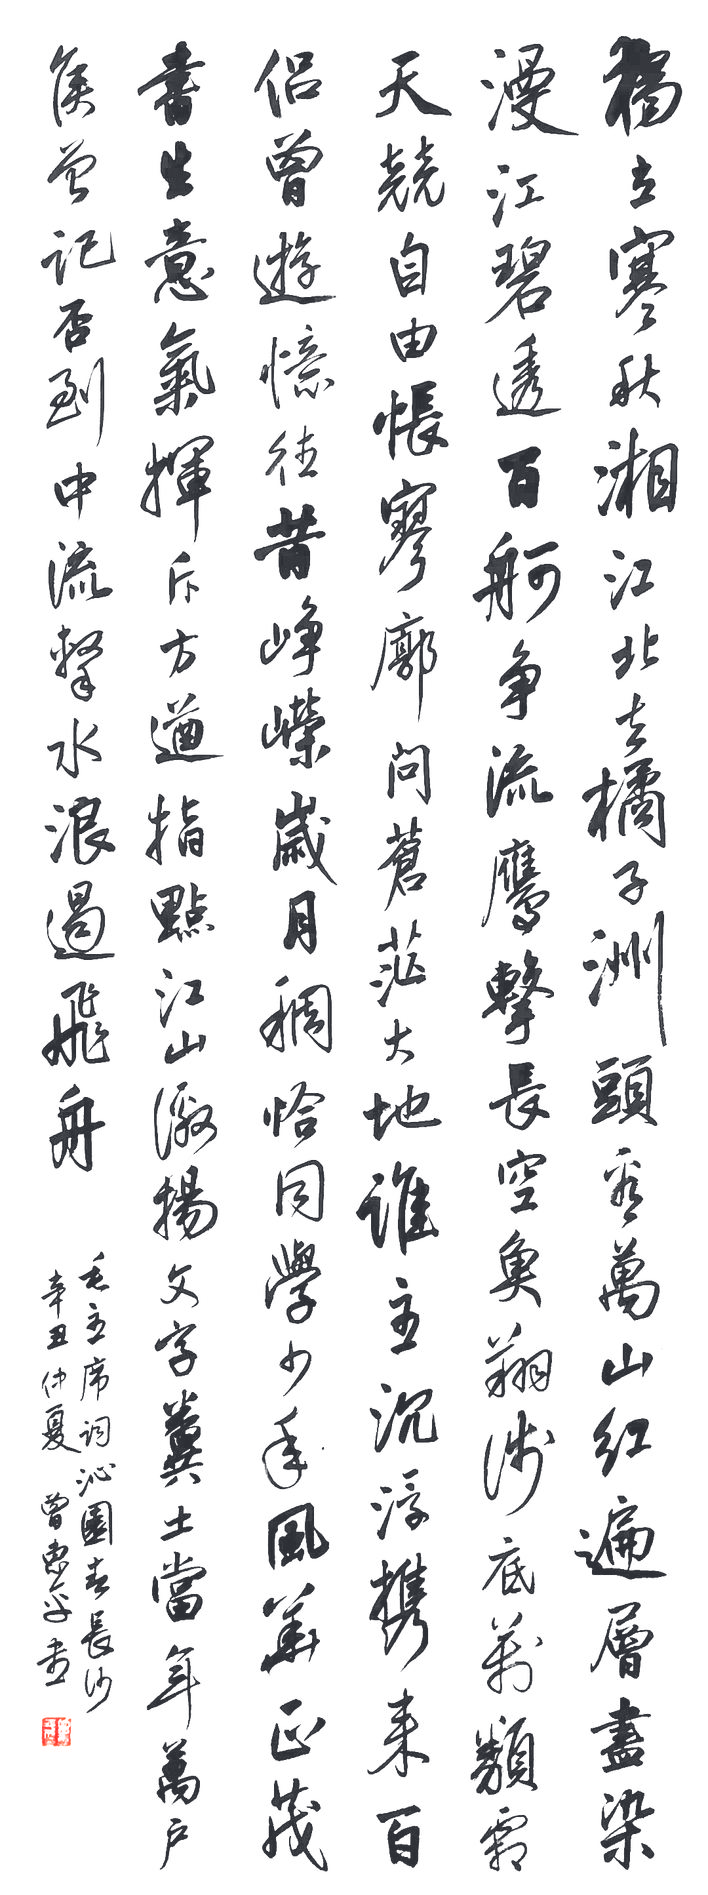 獨立寒秋湘江北去橘子洲頭看萬山紅遍層盡染
漫江碧透百舸争流鷹擊長空魚翔淺底萬類霜
天競自由悵寥廓問蒼茫大地誰主沉浮携來百
侣曾遊憶往昔崢嶸歲月稠恰同學少年風華正茂
書生意氣揮斥方遒指點江山激揚文字糞土當年萬戶
侯曾記否到中流擊水浪遏飛舟
毛主席詞沁園春長沙
辛丑仲夏 曾惠平書